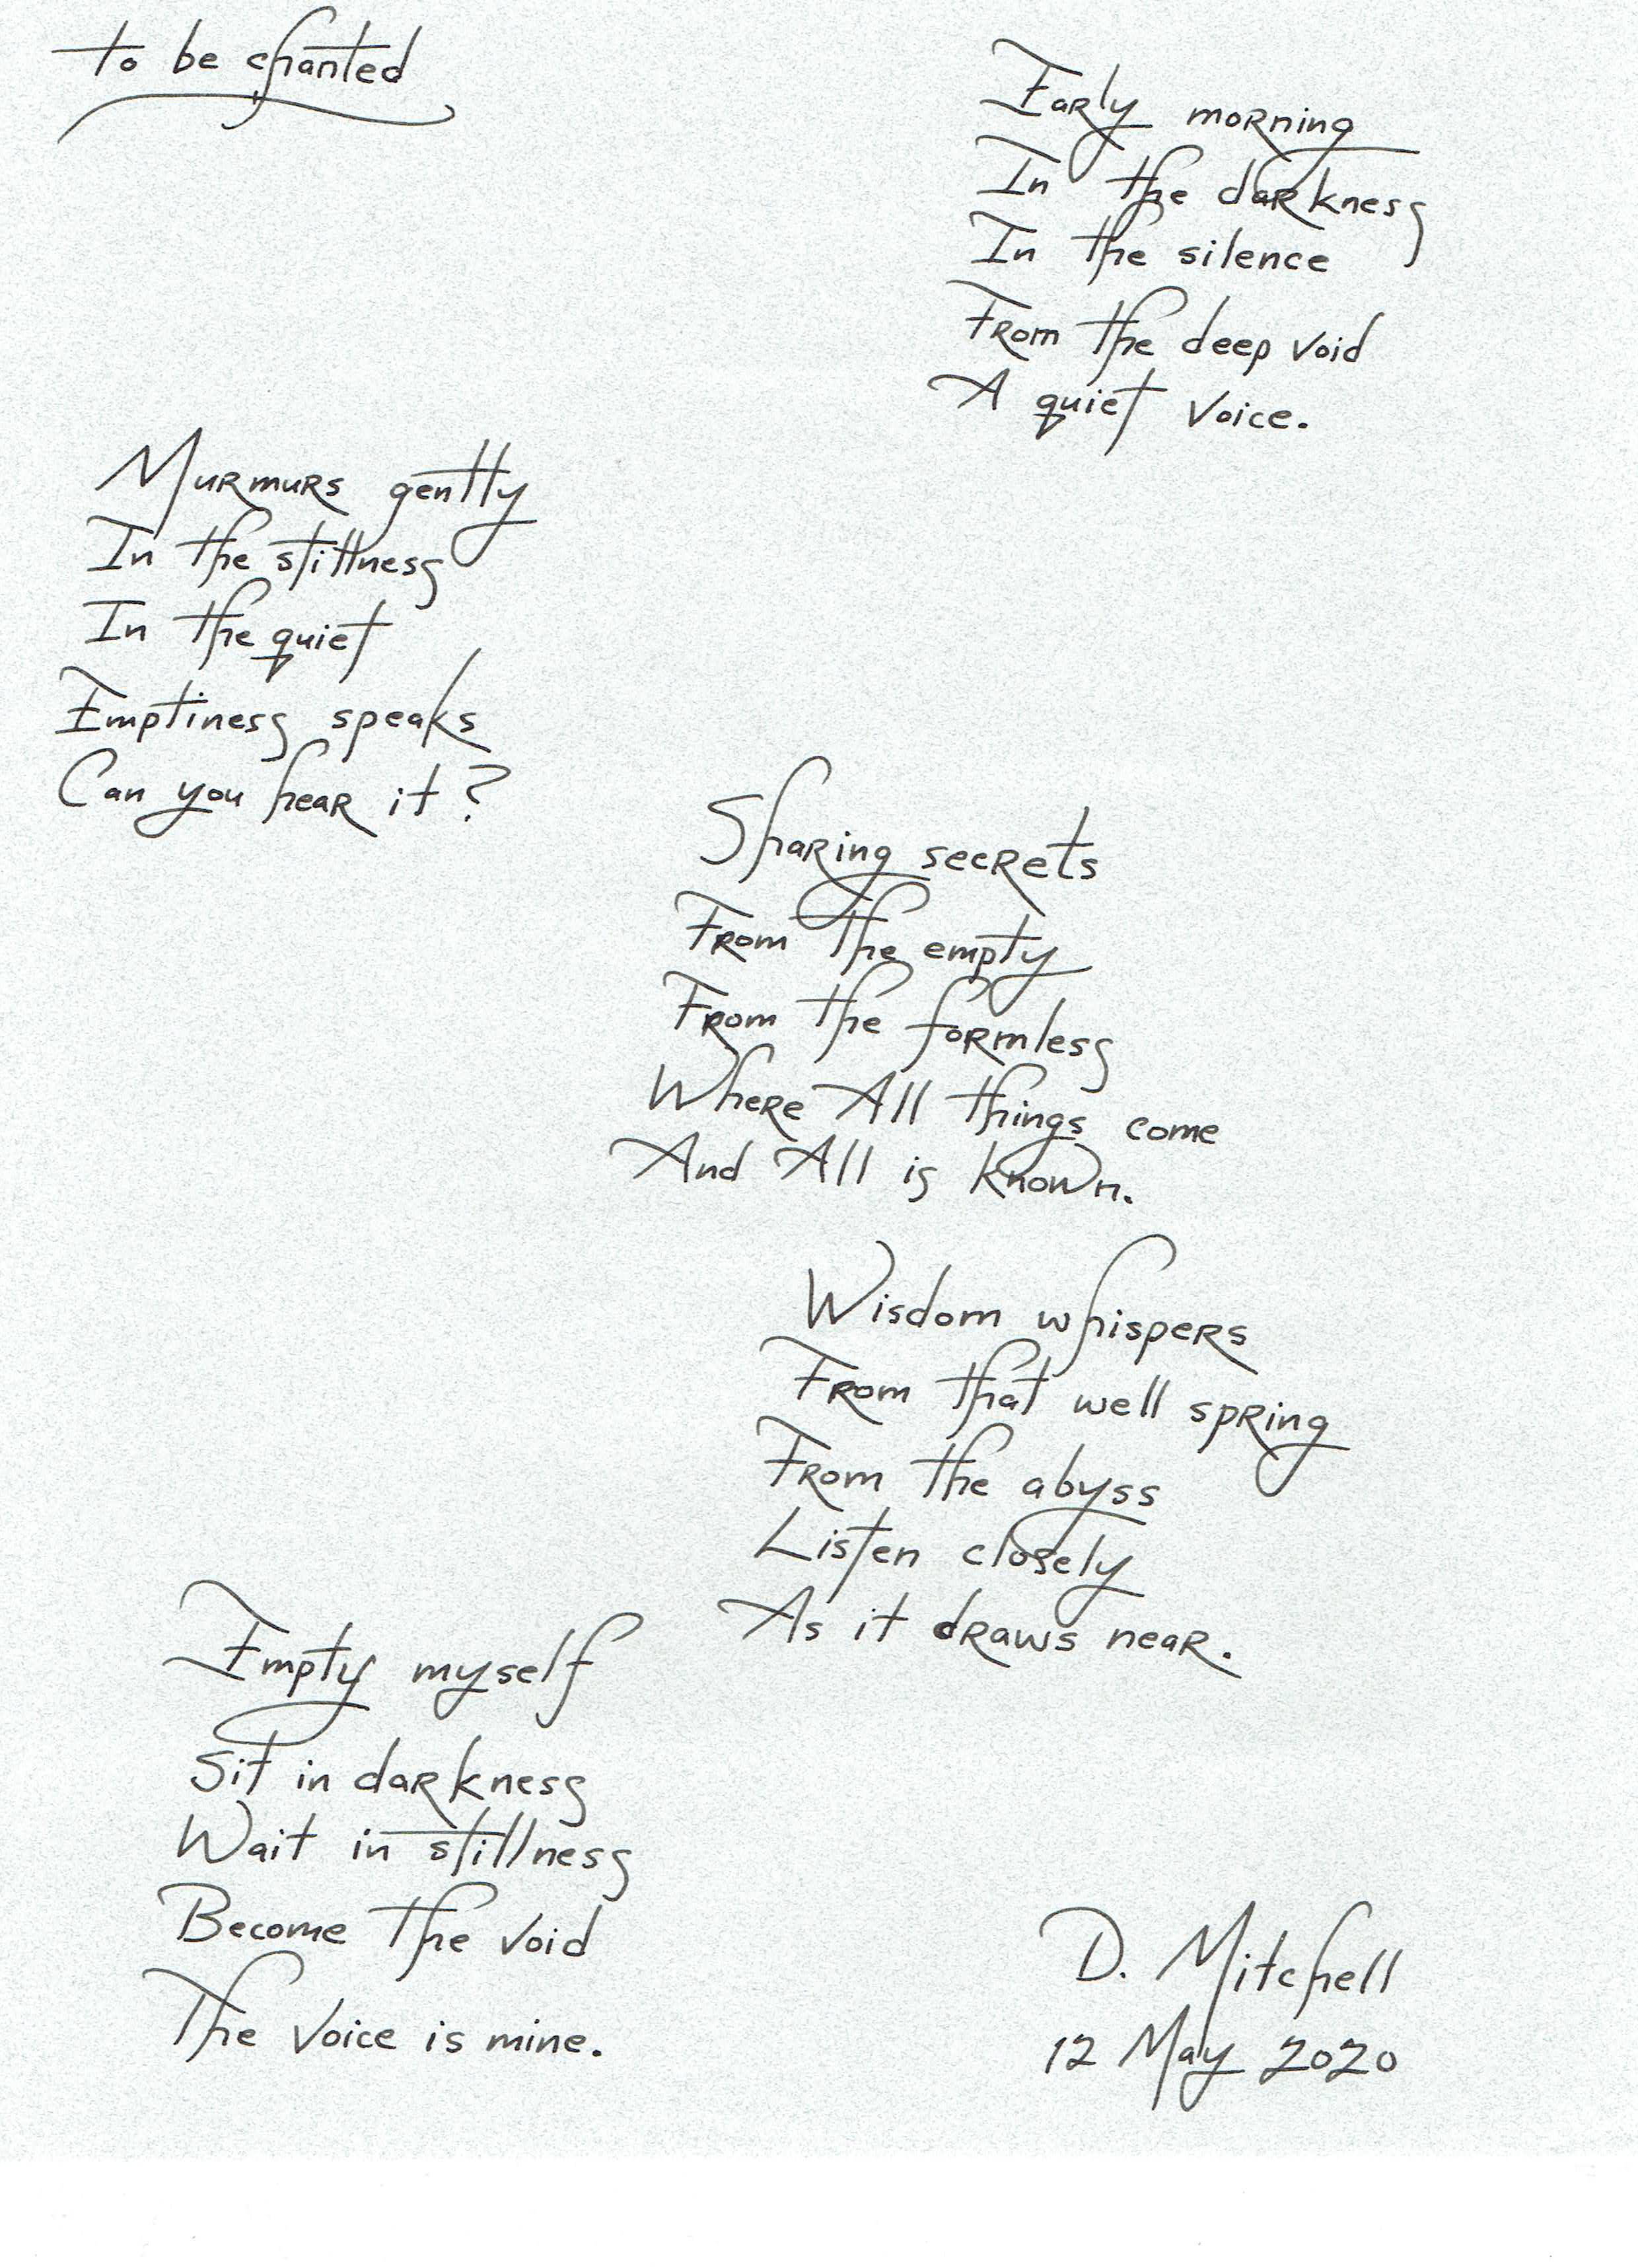 to be chanted
Early morning
In the darkness
In the silence
From the deep void
A quiet voice.
Murmurs gently
In the stillness
In the quiet
Emptiness speaks
Can you hear it?
Sharing secrets
From the empty
From the formless
Where All things come
And All is known.
Wisdom whispers
From that well spring
From the abyss
Listen closely
As it draws near.
Empty myself
Sit in darkness
Wait in stillness
Become the void
The voice is mine.
D. Mitchell
12 May 2020